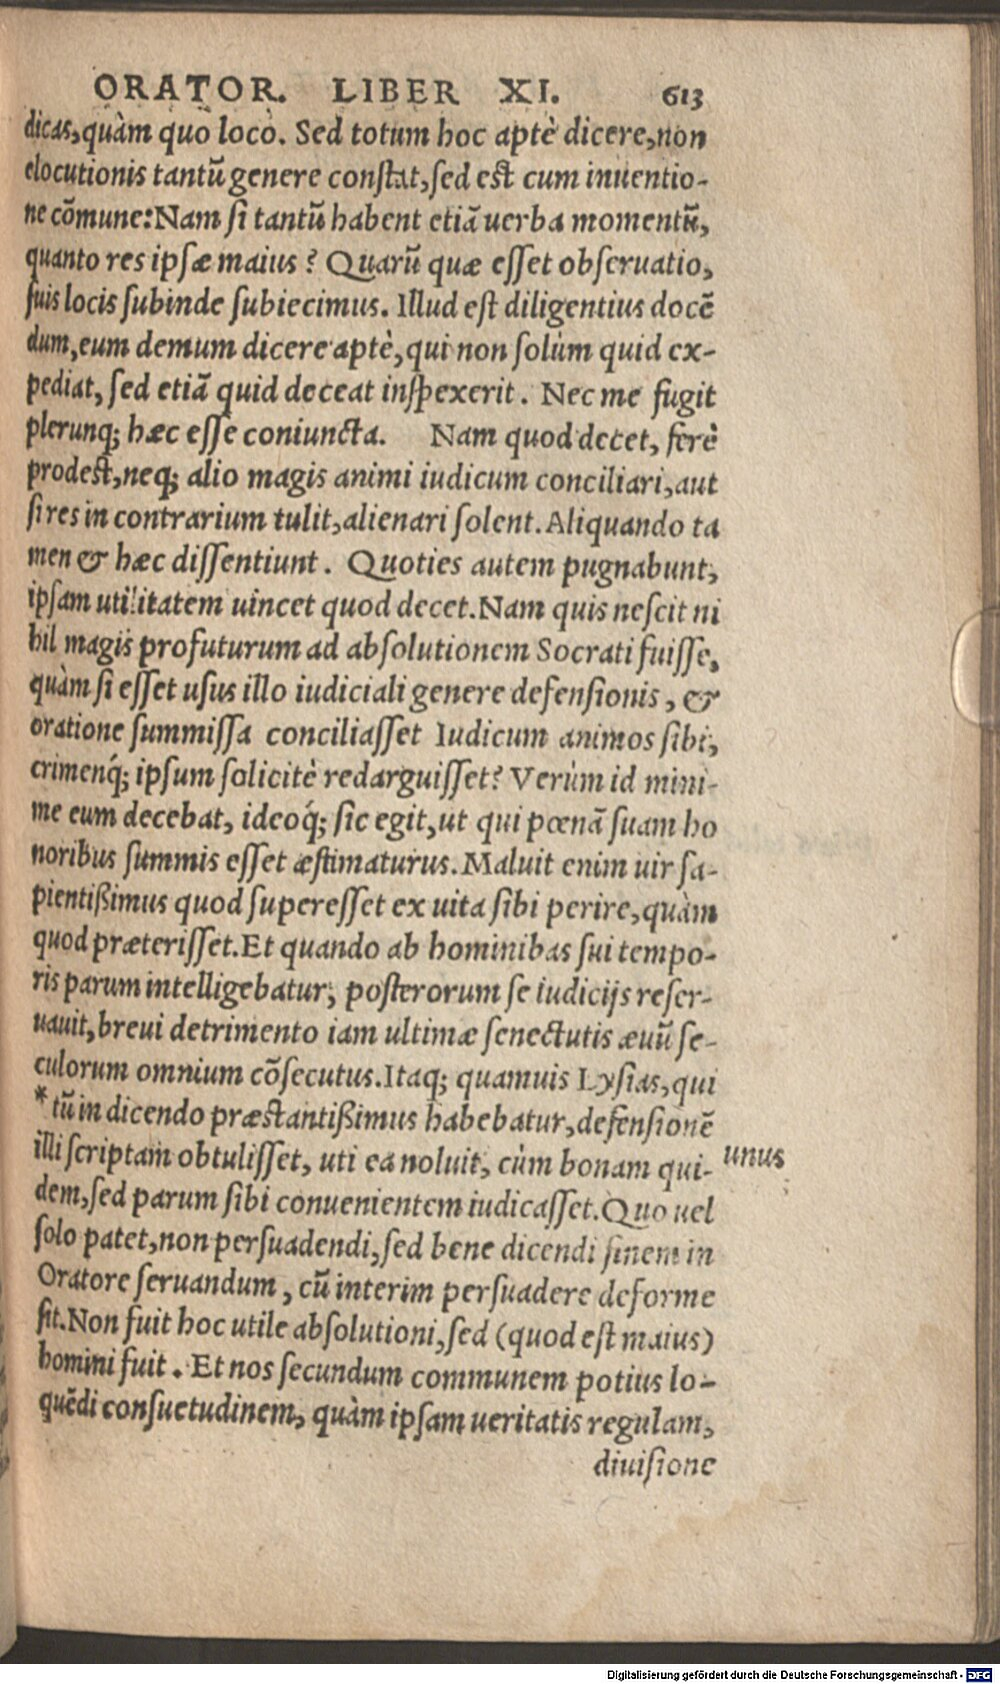 ORATOR. LIBER XI. 613
dicas, quàm quo locò. Sed totum hoc aptè dicere, non
elocutionis tantū genere constat, sed est cum inuentio-
ne cōmune: Nam si tantū habent etiā uerba momentū,
quanto res ipsæ maius? Quarū quæ esset obseruatio,
suis locis subinde subiecimus. Illud est diligentius docē
dum, eum demum dicere aptè, qui non solùm quid ex-
pediat, sed etiā quid deceat inspexerit. Nec me fugit
plerunq; hæc esse coniuncta. Nam quod decet, ferè
prodest, neq; alio magis animi iudicum conciliari, aut
si res in contrarium tulit, alienari solent. Aliquando ta
men & hæc dissentiunt. Quoties autem pugnabunt,
ipsam utilitatem uincet quod decet. Nam quis nescit ni
hil magis profuturum ad absolutionem Socrati fuisse,
quàm si esset usus illo iudiciali genere defensionis, &
oratione summissa conciliasset Iudicum animos sibi,
crimenq́; ipsum solicitè redarguisset? Verùm id mini-
me eum decebat, ideoq́; sic egit, ut qui pœnā suam ho
noribus summis esset æstimaturus. Maluit enim uir sa-
pientißimus quod superesset ex uita sibi perire, quàm
quod præterisset. Et quando ab hominibas sui tempo-
ris parum intelligebatur, posterorum se iudicijs reser-
uauit, breui detrimento iam ultimæ senectutis æuū se-
culorum omnium cōsecutus. Itaq; quamuis Lysias, qui
* tū in dicendo præstantißimus habebatur, defensionē
illi scriptam obtulisset, uti ea noluit, cùm bonam qui-
unus
dem, sed parum sibi conuenientem iudicasset. Quo uel
solo patet, non persuadendi, sed bene dicendi finem in
Oratore seruandum, cū interim persuadere deforme
sit. Non fuit hoc utile absolutioni, sed (quod est maius)
homini fuit. Et nos secundum communem potius lo-
quēdi consuetudinem, quàm ipsam ueritatis regulam,
diuisione
Digitalisierung gefördert durch die Deutsche Forschungsgemeinschaft - DFG